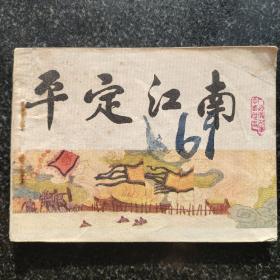 平定江南
61